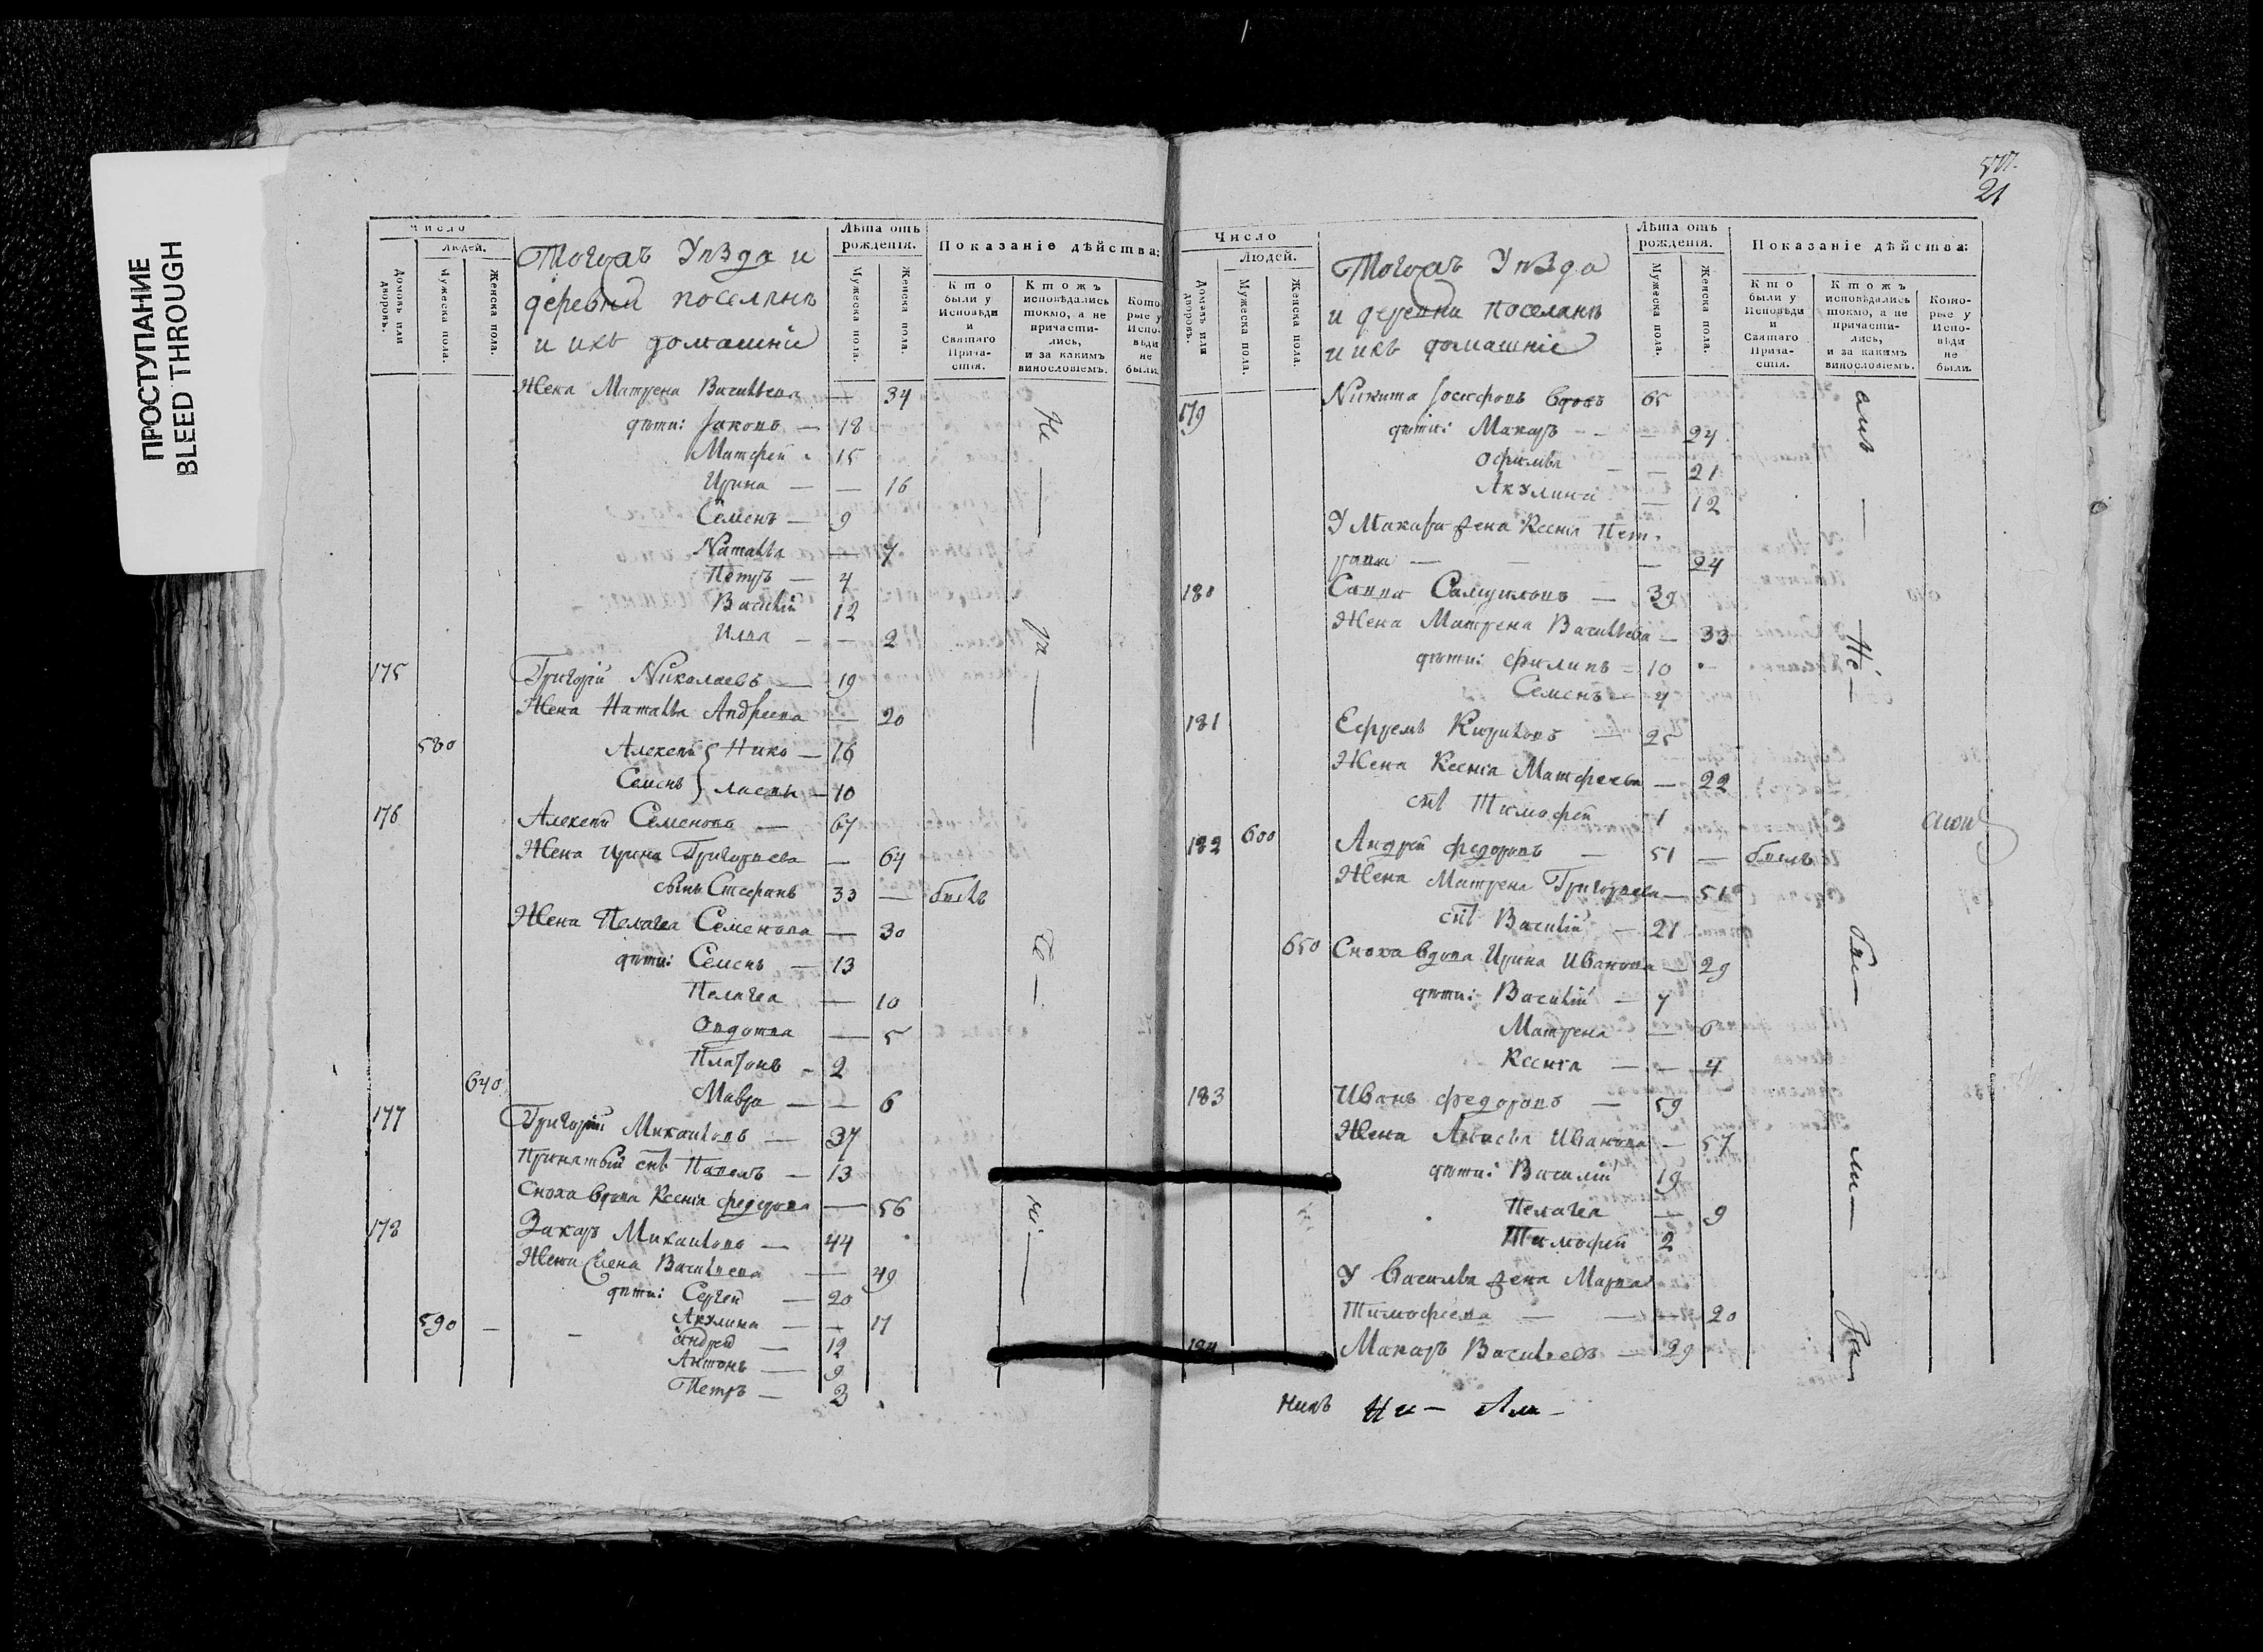 ПРОСТУПАНИЕ
BLEED THROUGH
Число
Людей.
Домовъ или дворовъ.
Мужеска пола.
Женска пола.
Тогожъ Уѣзда и
деревни поселянъ
и ихъ домашніе
Лѣта отъ рожденія.
Мужеска пола.
Женска пола.
Показаніе дѣйства:
Кто были у Исповѣди и Святаго Прича-стія.
Ктожъ исповѣдались токмо, а не причасти-лись, и за какимъ винословіемъ.
Кото-рые у Испо-вѣди не были.
Жена Матрена Васильева — 34
дѣти: Іаковъ — 18
Матфей 15
Ирина — — 16
Семенъ — 9
Наталья — 7
Петръ — 4
Василій 12
— — 2
175 Григорій Николаевъ — 19
Жена Наталья Андреева — 20
580 Алексей Нико — 16
Семенъ лаевы — 10
176 Алексей Семеновъ — 67
Жена Ирина Григорьева — 64
сынъ Стефанъ 33 — былъ
Жена Пелагея Семенова — 30
дѣти: Семенъ — 13
Пелагея — 10
Овдотья — 5
Платонъ — 2
640 Мавра — — 6
177 Григорій Михайловъ — 37
Принятый снъ Павелъ — 13
Сноха вдова Ксенія Федорова — 56
178 Захаръ Михайловъ — 44
Жена Елена Васильева — 49
дѣти: Сергей — 20
Акулина — — 17
590 — — Андрей — 12
Антонъ — 9
Петръ — 3
21
Число
Людей.
Домовъ или дворовъ.
Мужеска пола.
Женска пола.
Тогожъ Уѣзда
и деревни поселянъ
и ихъ домашніе
Лѣта отъ рожденія.
Мужеска пола.
Женска пола.
Показаніе дѣйства:
Кто были у Исповѣди и Святаго Прича-стія.
Ктожъ исповѣдались токмо, а не причасти-лись, и за какимъ винословіемъ.
Кото-рые у Испо-вѣди не были.
179 Никита Іосифовъ вдовъ 65
дѣти: Макаръ — — 24
Офимья — — 21
Акулина — 12
У Макара жена Ксенія Пет-
рова — — — 24
180 Савва Самуиловъ — 39
Жена Матрена Васильева — 33
дѣти: Филипъ — 10
Семенъ — 4
181 Ефремъ Кириловъ — 25
Жена Ксенія Матфеева — 22
снъ Тимофей 1
182 600 Андрей Федоровъ — 51 — былъ
Жена Матрена Григорьева — 51
снъ Василій — 21
650 Сноха вдова Ирина Иванова — 29
дѣти: Василій — 7
Матрена — 6
Ксенія — — 4
183 Иванъ Федоровъ — 59
Жена Анисья Иванова — 57
дѣти: Василій 19
Пелагея — 9
Тимофей 2
У Василья жена Марья
Тимофеева — — 20
184 Макаръ Васильевъ — 29